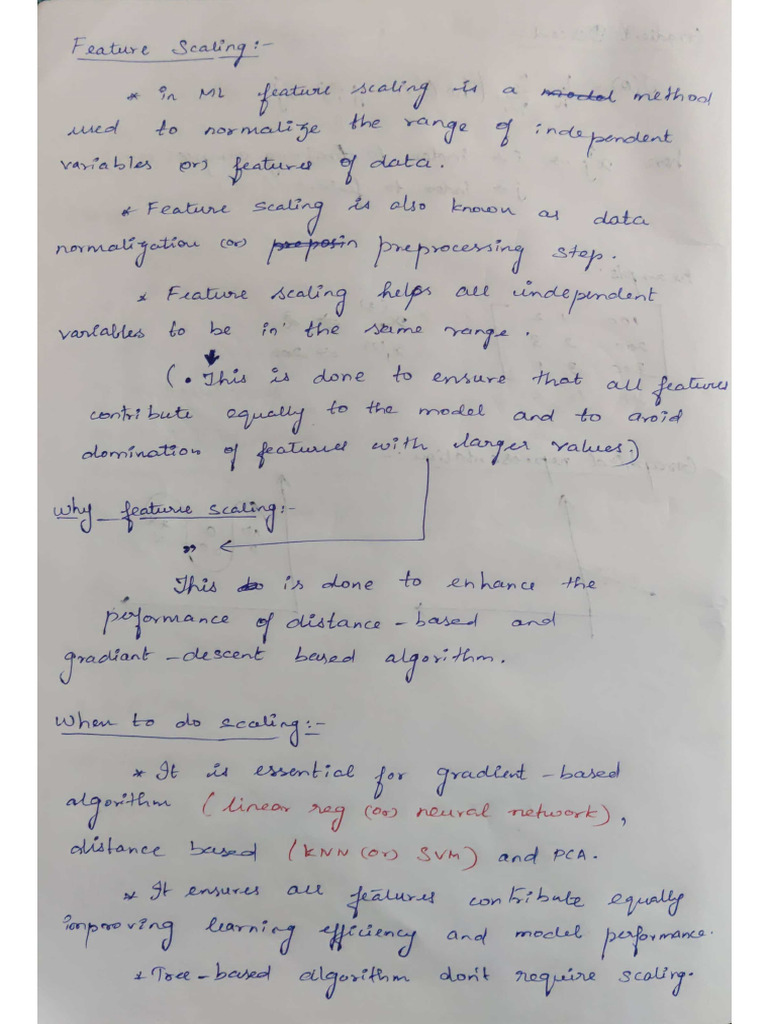 Feature Scaling:-
* in ML feature scaling is a model method
used to normalize the range of independent
variables (or) features of data.
* Feature scaling is also known as data
normalization (or) preposin preprocessing step.
* Feature scaling helps all independent
variables to be in the same range.
(• This is done to ensure that all features
contribute equally to the model and to avoid
domination of features with larger values.)
Why feature scaling:-
"
This is done to enhance the
performance of distance-based and
gradiant-descent based algorithm.
When to do scaling:-
* It is essential for gradient-based
algorithm (linear reg (or) neural network),
distance based (KNN (or) SVM) and PCA.
* It ensures all features contribute equally
improving learning efficiency and model performance.
* Tree-based algorithm don't require scaling.